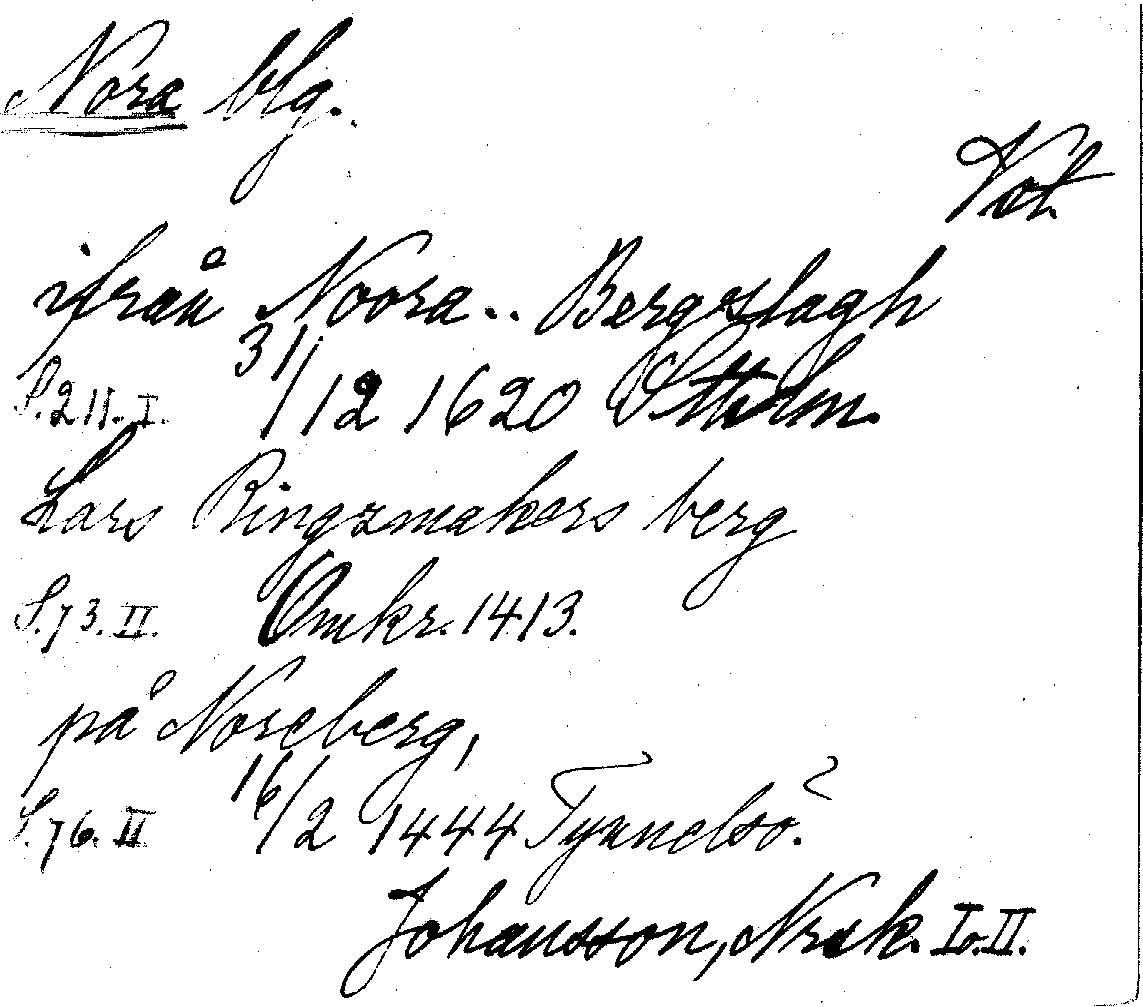 Nora blg.
Vst.
ifrån Noora.. Bergzlagh
S. 211. I. 31/12 1620 Stholm.
Lars Ringzmakers berg
S. 73. II. Omkr. 1413.
på Noreberg,
S. 76. II 16/2 1444 Tynnelsö.
Johansson, Nrsk. I o. II.